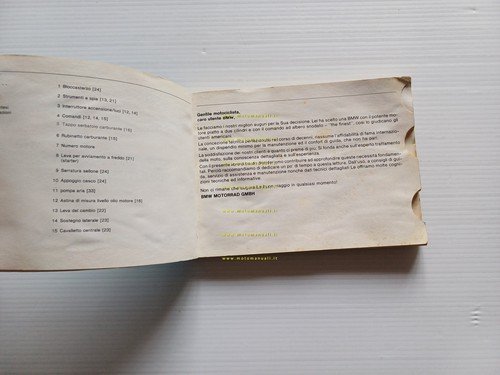 1 Bloccasterzo [24]
2 Strumenti e spie [13, 21]
3 Interruttore accensione/luci [12, 14]
4 Comandi [12, 14, 15]
5 Tappo serbatoio carburante [16]
6 Rubinetto carburante [15]
7 Numero motore
8 Leva per avviamento a freddo [21]
(starter)
9 Serratura sellone [24]
10 Appoggio casco [24]
11 pompa aria [33]
12 Astina di misura livello olio motore [16]
13 Leva del cambio [22]
14 Sostegno laterale [23]
15 Cavalletto centrale [23]
Gentile motociclista,
caro utente BMW,
www.motomanuali.it
Le facciamo i nostri migliori auguri per la Sua decisione. Lei ha scelto una BMW con il potente motore piatto a due cilindri e con il comando ad albero snodato – "the finest", così lo giudicano gli utenti americani.
La concezione tecnica perfezionata nel corso di decenni, riassume l'affidabilità di fama internazionale, un dispendio minimo per la manutenzione ed il confort di guida, che non ha pari.
La soddisfazione dei nostri clienti è quanto ci preme di più; si fonda anche sull'esperto trattamento delle moto, sulla conoscenza dettagliata e sull'equipaggio.
Con il presente
contribuire ad approfondire queste necessità fondamentali. Perciò raccomandiamo di dedicare un po' di tempo a questa lettura. Dati utili, a consigli di guida, servizio di assistenza e manutenzione nonché dati tecnici dettagliati Le offriamo molte cognizioni tecniche ed informative.
Non ci rimane che augurarLe buon viaggio in qualsiasi momento!
BMW MOTORRAD GMBH
www.motomanuali.it
www.motomanuali.it